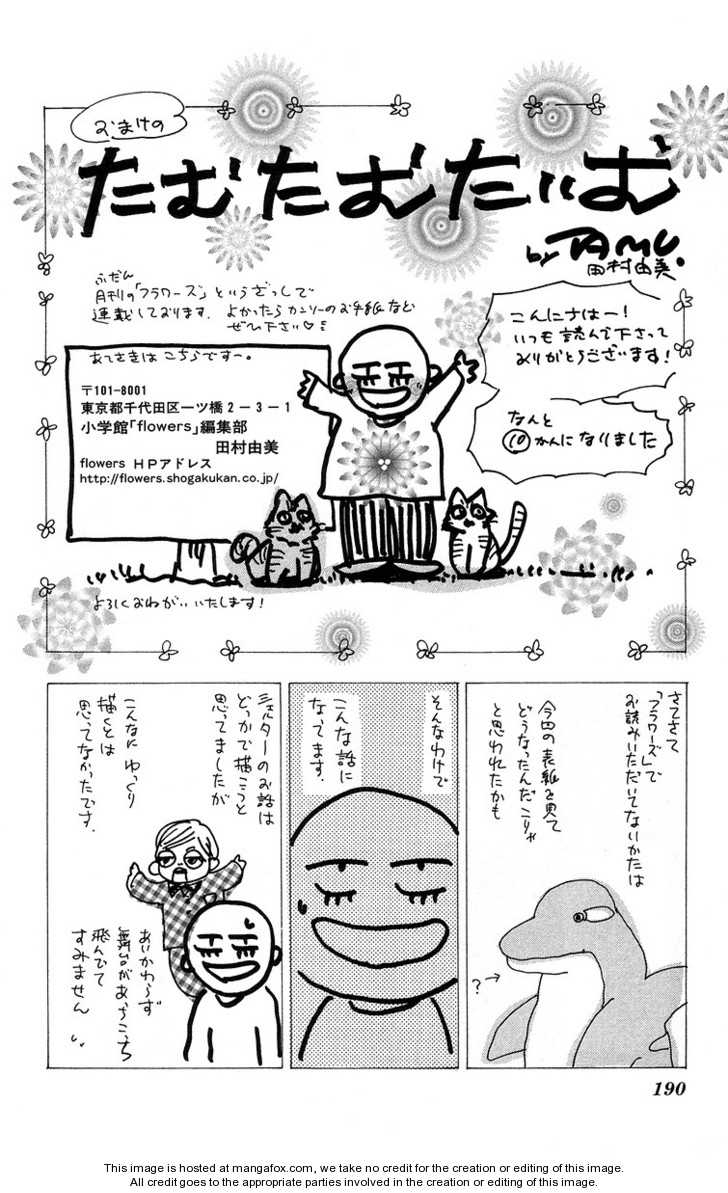 おまけの
たむたむたいむ
by TAMU.
田村由美
ふだん
月刊の「フラワーズ」というざっしで
連載しております。よかったらカンソーのお手紙など
ぜひ下さい♡
こんにちはー!
いつも読んで下さって
ありがとうございます!
なんと
⑩かんになりました
あてさきはこちらですー。
〒101-8001
東京都千代田区一ツ橋2-3-1
小学館「flowers」編集部
田村由美
flowers HPアドレス
http://flowers.shogakukan.co.jp/
よろしくおねがいいたします!
さてさて
「フラワーズ」で
お読みいただいてないかたは
今回の表紙を見て
どうなったんだこりゃ
と思われたかも
?→
そんなわけで
こんな話に
なってます。
シェルターのお話は
どっかで描こうと
思ってましたが
こんなにゆっくり
描くとは
思ってなかったです。
あいかわらず
舞台があっちこっち
飛んでて
すみません
190
This image is hosted at mangafox.com, we take no credit for the creation or editing of this image.
All credit goes to the appropriate parties involved in the creation or editing of this image.